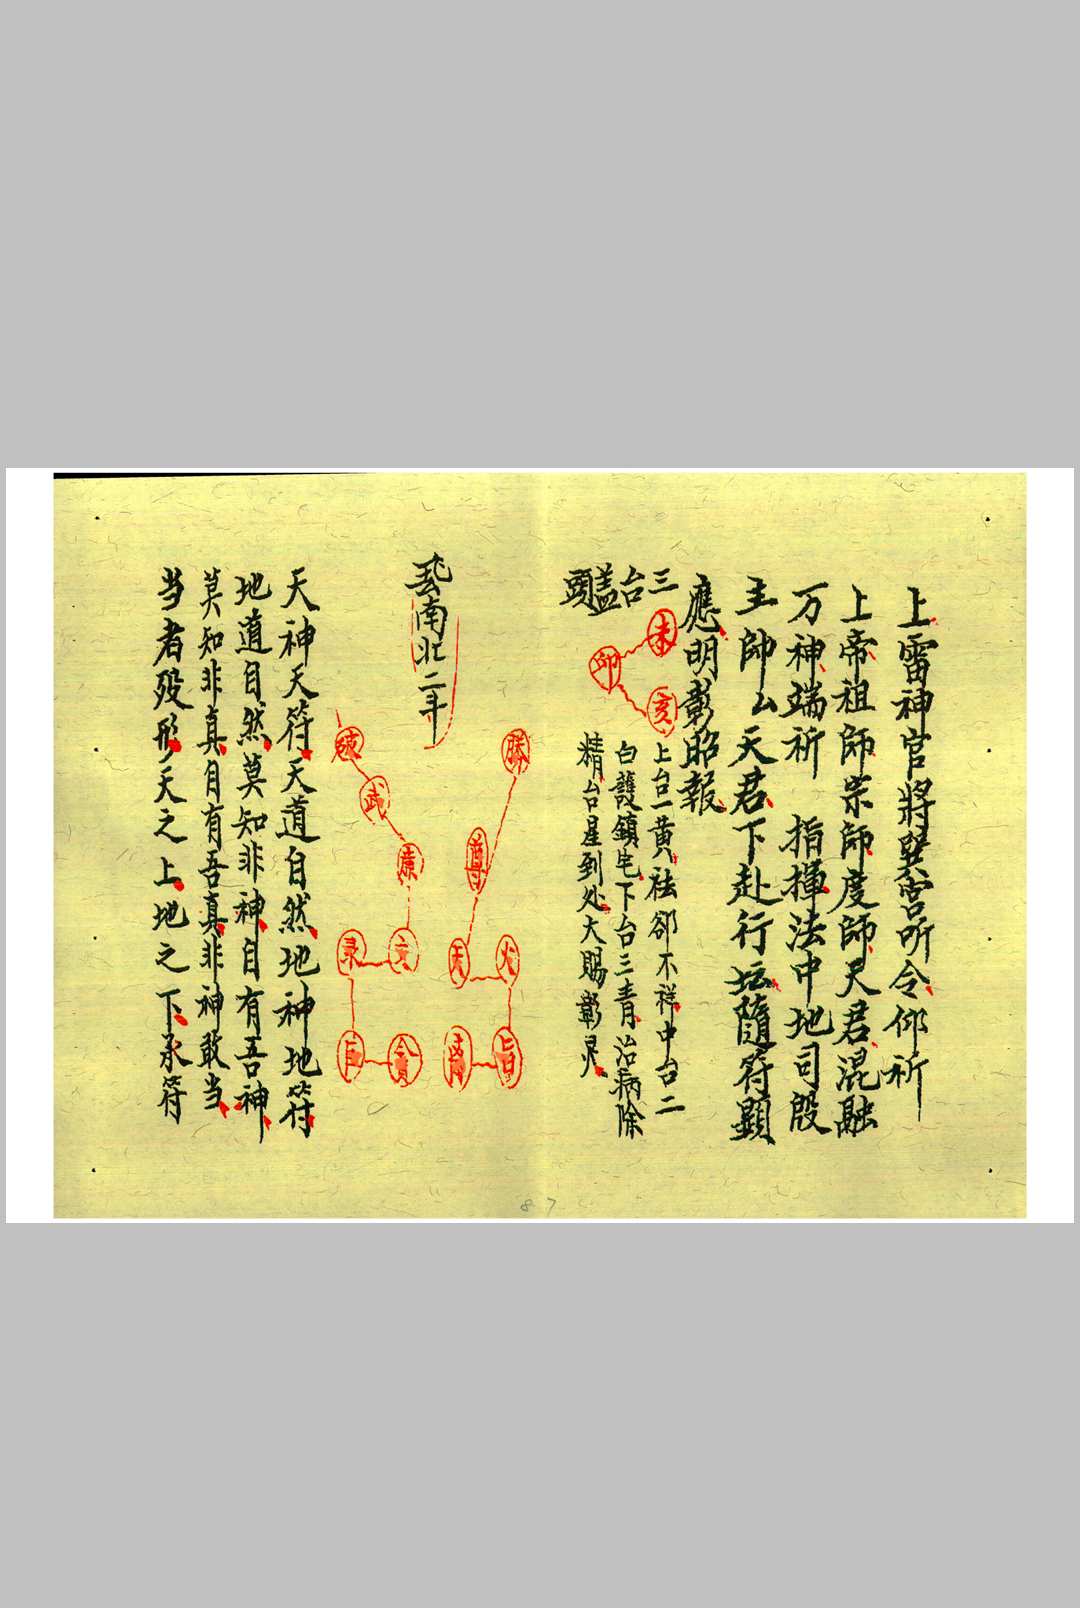 上雷神官將巽宮所令仰祈
上帝祖師宗師度師天君混融
万神端祈　指揮法中地司殷
主帥厶天君下赴行坛隨符顯
應明彰昭報
三台盖頭
未
卯
亥
上台一黄祛邵不祥中台二
白護鎮宅下台三青治病除
精台星到处大賜彰灵
南北二斗
勝
尊
天
火
旨
破
武
廉
文
录
巨
貪
天神天符天道自然地神地符
地道自然莫知非神自有吾神
莫知非真自有吾真非神敢当
当者殁形天之上地之下承符
87